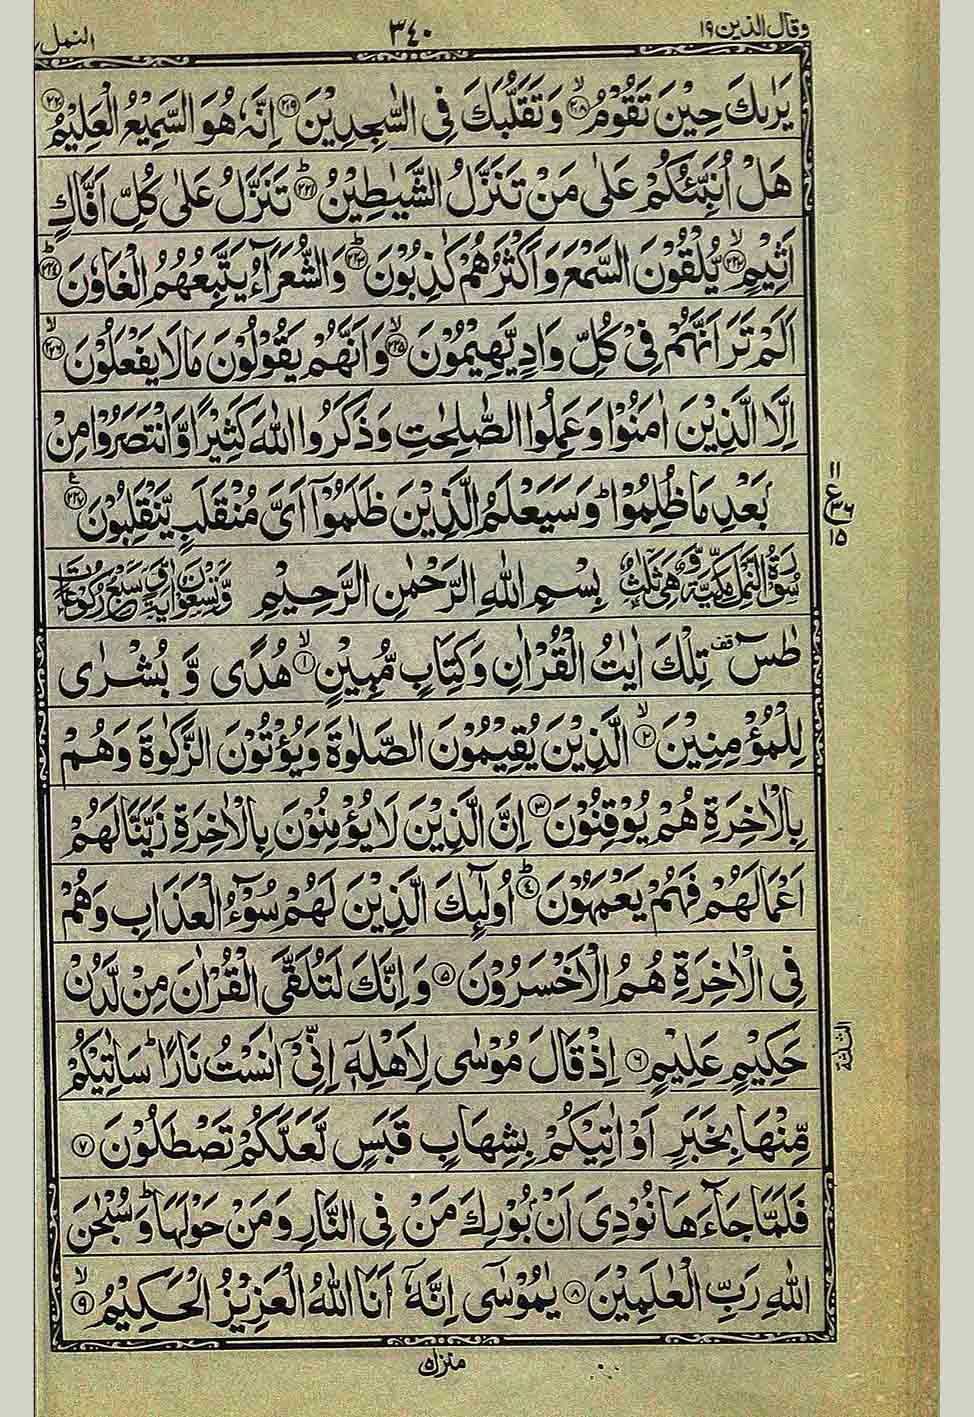 وقال الذین ۱۹
۳٤۰
النمل
یَرٰىكَ حِیْنَ تَقُوْمُۙ۝۲۱۸ وَتَقَلُّبَكَ فِی السّٰجِدِیْنَ۝۲۱۹ اِنَّهٗ هُوَ السَّمِیْعُ الْعَلِیْمُ۝۲۲۰
هَلْ اُنَبِّئُكُمْ عَلٰى مَنْ تَنَزَّلُ الشَّیٰطِیْنُؕ۝۲۲۱ تَنَزَّلُ عَلٰى كُلِّ اَفَّاكٍ
اَثِیْمٍۙ۝۲۲۲ یُّلْقُوْنَ السَّمْعَ وَاَكْثَرُهُمْ كٰذِبُوْنَؕ۝۲۲۳ وَالشُّعَرَآءُ یَتَّبِعُهُمُ الْغَاوٗنَؕ۝۲۲٤
اَلَمْ تَرَ اَنَّهُمْ فِیْ كُلِّ وَادٍ یَّهِیْمُوْنَۙ۝۲۲۵ وَاَنَّهُمْ یَقُوْلُوْنَ مَالَا یَفْعَلُوْنَۙ۝۲۲۶
اِلَّا الَّذِیْنَ اٰمَنُوْا وَعَمِلُوا الصّٰلِحٰتِ وَذَكَرُوا اللّٰهَ كَثِیْرًا وَّانْتَصَرُوْا مِنْ
بَعْدِ مَا ظُلِمُوْاؕ وَسَیَعْلَمُ الَّذِیْنَ ظَلَمُوْۤا اَیَّ مُنْقَلَبٍ یَّنْقَلِبُوْنَ۝۲۲۷
۱۱
ع
۳۶
۱۵
سُوْرَةُ النَّمْلِ مَكِّیَّةٌ وَّهِیَ ثَلٰثٌ بِسْمِ اللّٰهِ الرَّحْمٰنِ الرَّحِیْمِ وَّتِسْعُوْنَ اٰیَةً وَّسَبْعُ رُكُوْعَاتٍ
طٰسٓ قف تِلْكَ اٰیٰتُ الْقُرْاٰنِ وَكِتَابٍ مُّبِیْنٍۙ۝۱ هُدًى وَّ بُشْرٰى
لِلْمُؤْمِنِیْنَۙ۝۲ الَّذِیْنَ یُقِیْمُوْنَ الصَّلٰوةَ وَیُؤْتُوْنَ الزَّكٰوةَ وَهُمْ
بِالْاٰخِرَةِ هُمْ یُوْقِنُوْنَ۝۳ اِنَّ الَّذِیْنَ لَا یُؤْمِنُوْنَ بِالْاٰخِرَةِ زَیَّنَّا لَهُمْ
اَعْمَالَهُمْ فَهُمْ یَعْمَهُوْنَؕ۝٤ اُولٰٓىِٕكَ الَّذِیْنَ لَهُمْ سُوْٓءُ الْعَذَابِ وَهُمْ
فِی الْاٰخِرَةِ هُمُ الْاَخْسَرُوْنَ۝۵ وَاِنَّكَ لَتُلَقَّى الْقُرْاٰنَ مِنْ لَّدُنْ
حَكِیْمٍ عَلِیْمٍ۝۶ اِذْ قَالَ مُوْسٰى لِاَهْلِهٖۤ اِنِّیْۤ اٰنَسْتُ نَارًاؕ سَاٰتِیْكُمْ
الثلثة
مِّنْهَا بِخَبَرٍ اَوْ اٰتِیْكُمْ بِشِهَابٍ قَبَسٍ لَّعَلَّكُمْ تَصْطَلُوْنَ۝۷
فَلَمَّا جَآءَهَا نُوْدِیَ اَنْۢ بُوْرِكَ مَنْ فِی النَّارِ وَمَنْ حَوْلَهَاؕ وَسُبْحٰنَ
اللّٰهِ رَبِّ الْعٰلَمِیْنَ۝۸ یٰمُوْسٰۤى اِنَّهٗۤ اَنَا اللّٰهُ الْعَزِیْزُ الْحَكِیْمُۙ۝۹
منزل ۵